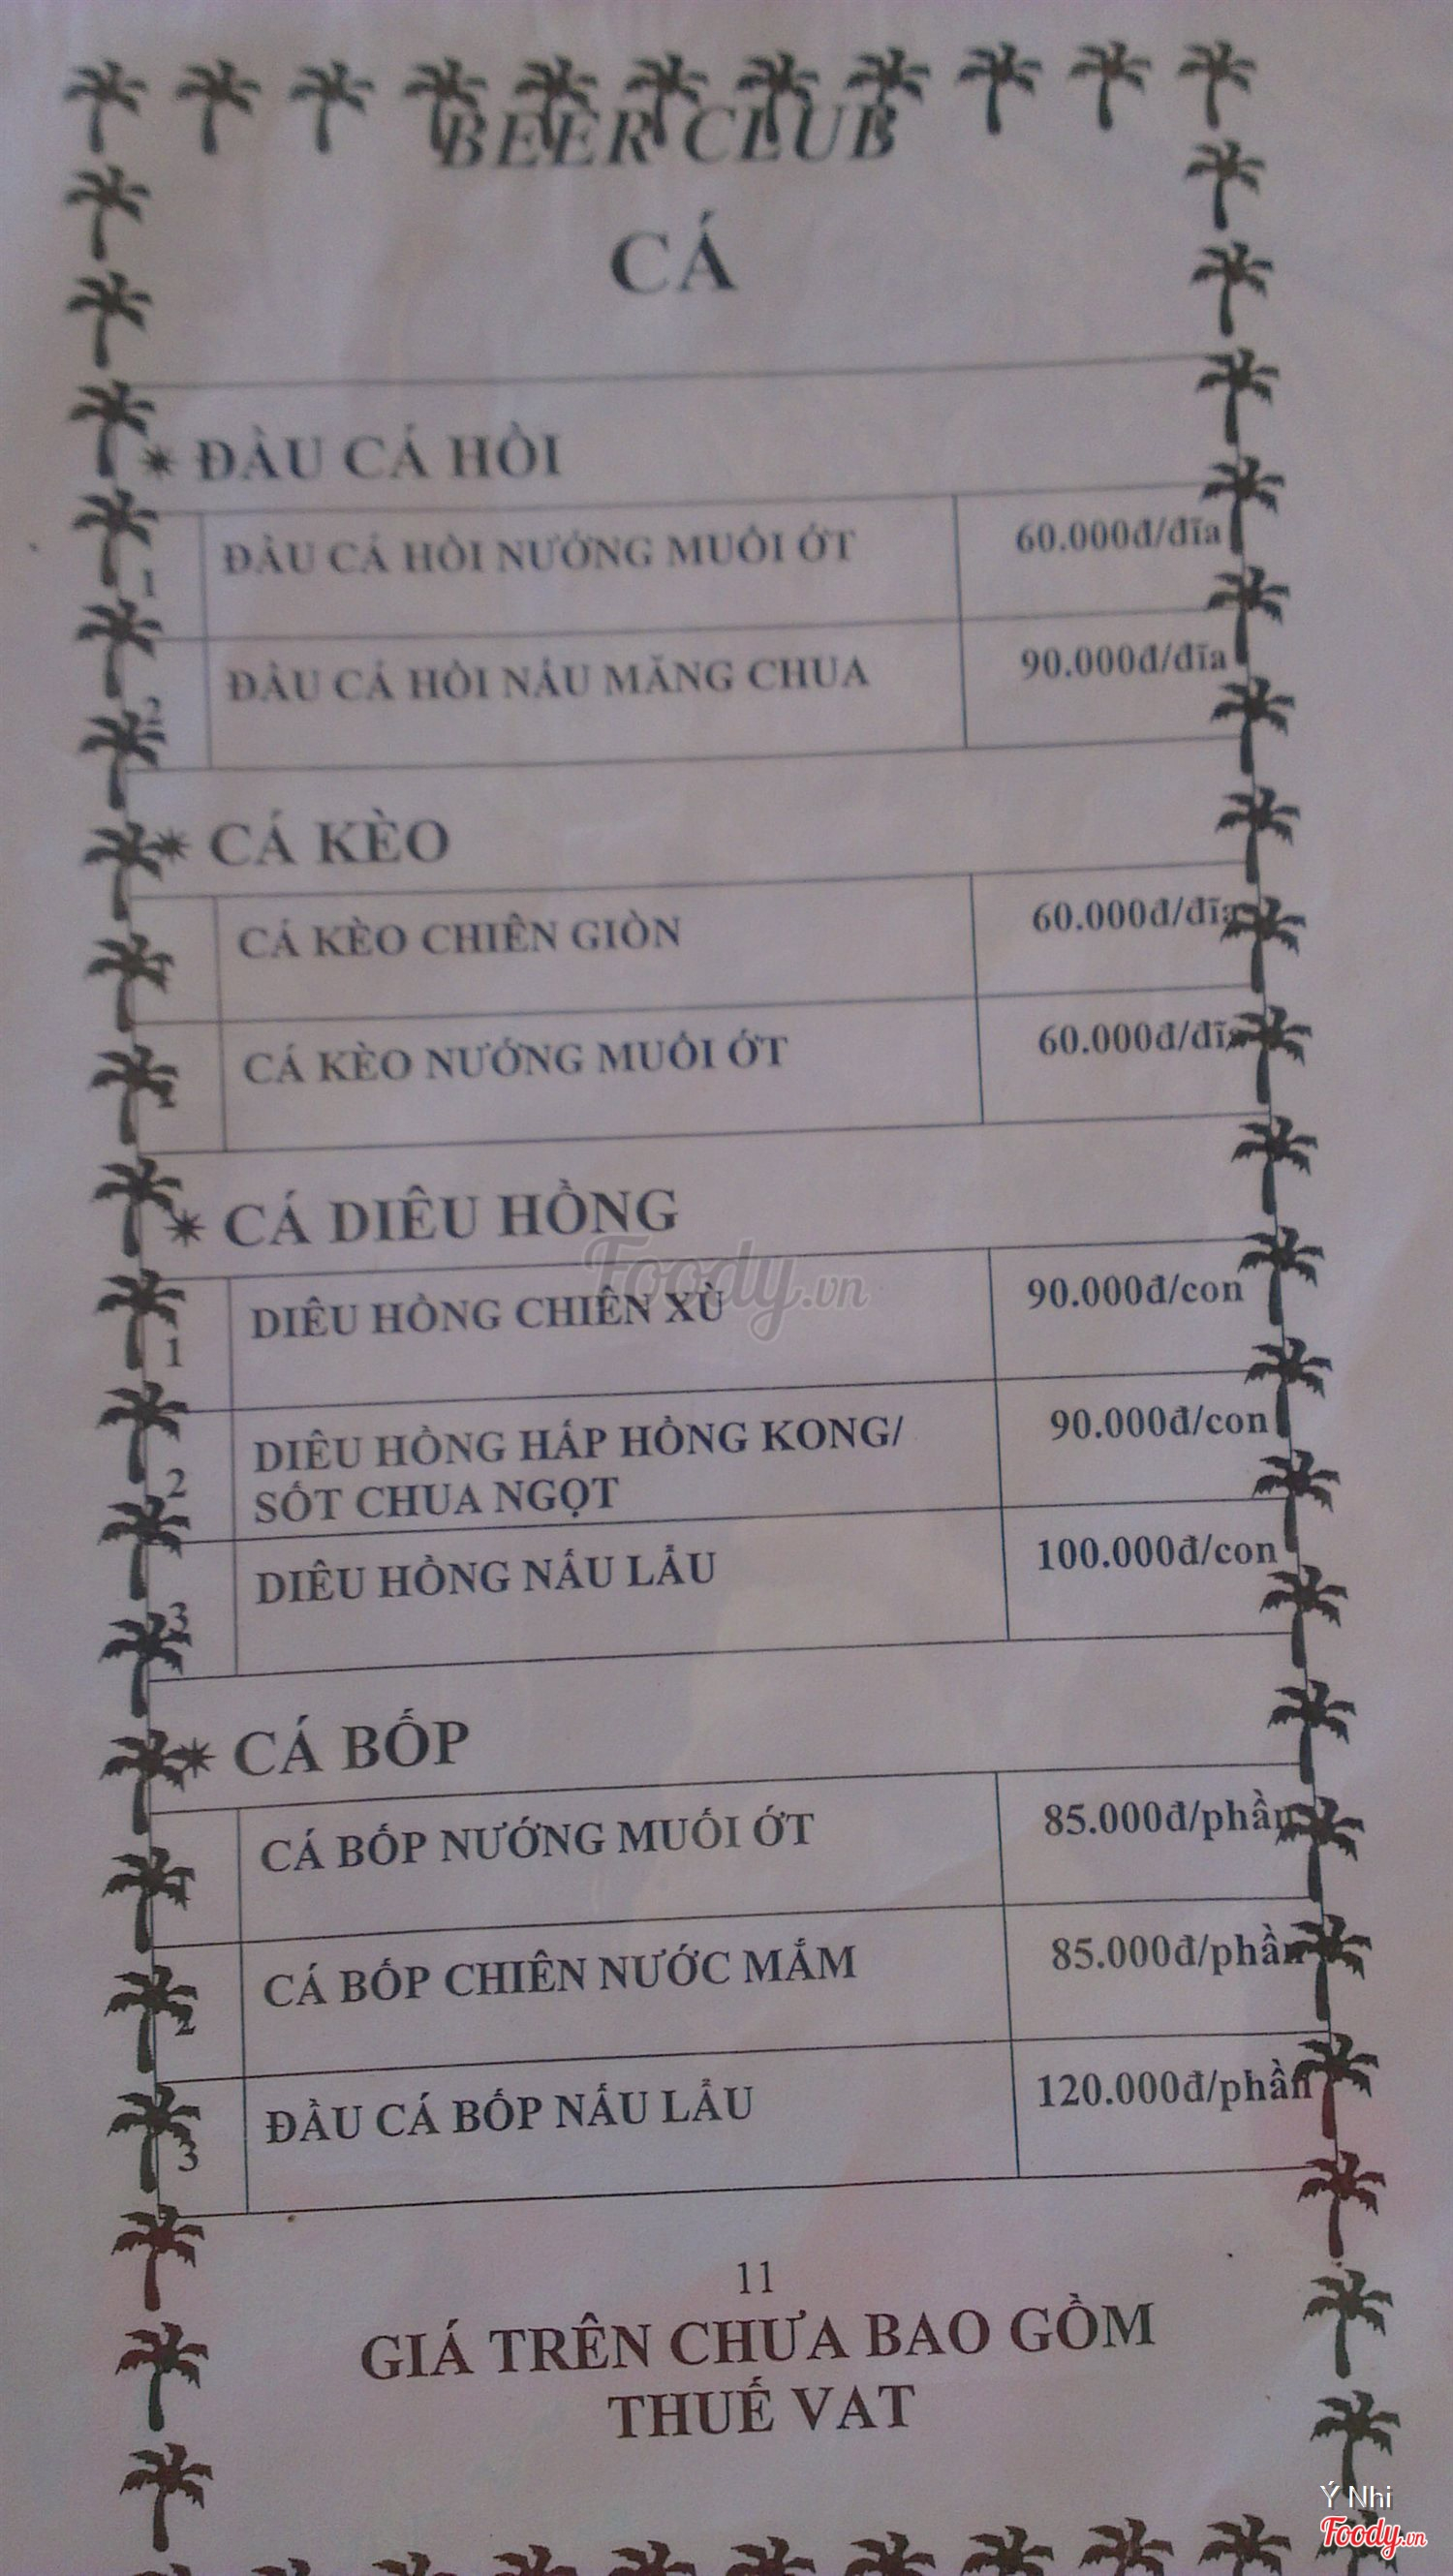 BEER CLUB
CÁ
✶ ĐẦU CÁ HỒI
1 ĐẦU CÁ HỒI NƯỚNG MUỐI ỚT 60.000đ/đĩa
2 ĐẦU CÁ HỒI NẤU MĂNG CHUA 90.000đ/đĩa
✶ CÁ KÈO
1 CÁ KÈO CHIÊN GIÒN 60.000đ/đĩa
2 CÁ KÈO NƯỚNG MUỐI ỚT 60.000đ/đĩa
✶ CÁ DIÊU HỒNG
1 DIÊU HỒNG CHIÊN XÙ 90.000đ/con
2 DIÊU HỒNG HẤP HỒNG KONG/ 90.000đ/con
SỐT CHUA NGỌT
3 DIÊU HỒNG NẤU LẨU 100.000đ/con
✶ CÁ BỐP
1 CÁ BỐP NƯỚNG MUỐI ỚT 85.000đ/phần
2 CÁ BỐP CHIÊN NƯỚC MẮM 85.000đ/phần
3 ĐẦU CÁ BỐP NẤU LẨU 120.000đ/phần
11
GIÁ TRÊN CHƯA BAO GỒM
THUẾ VAT
Foody.vn
Ý Nhi
Foody.vn